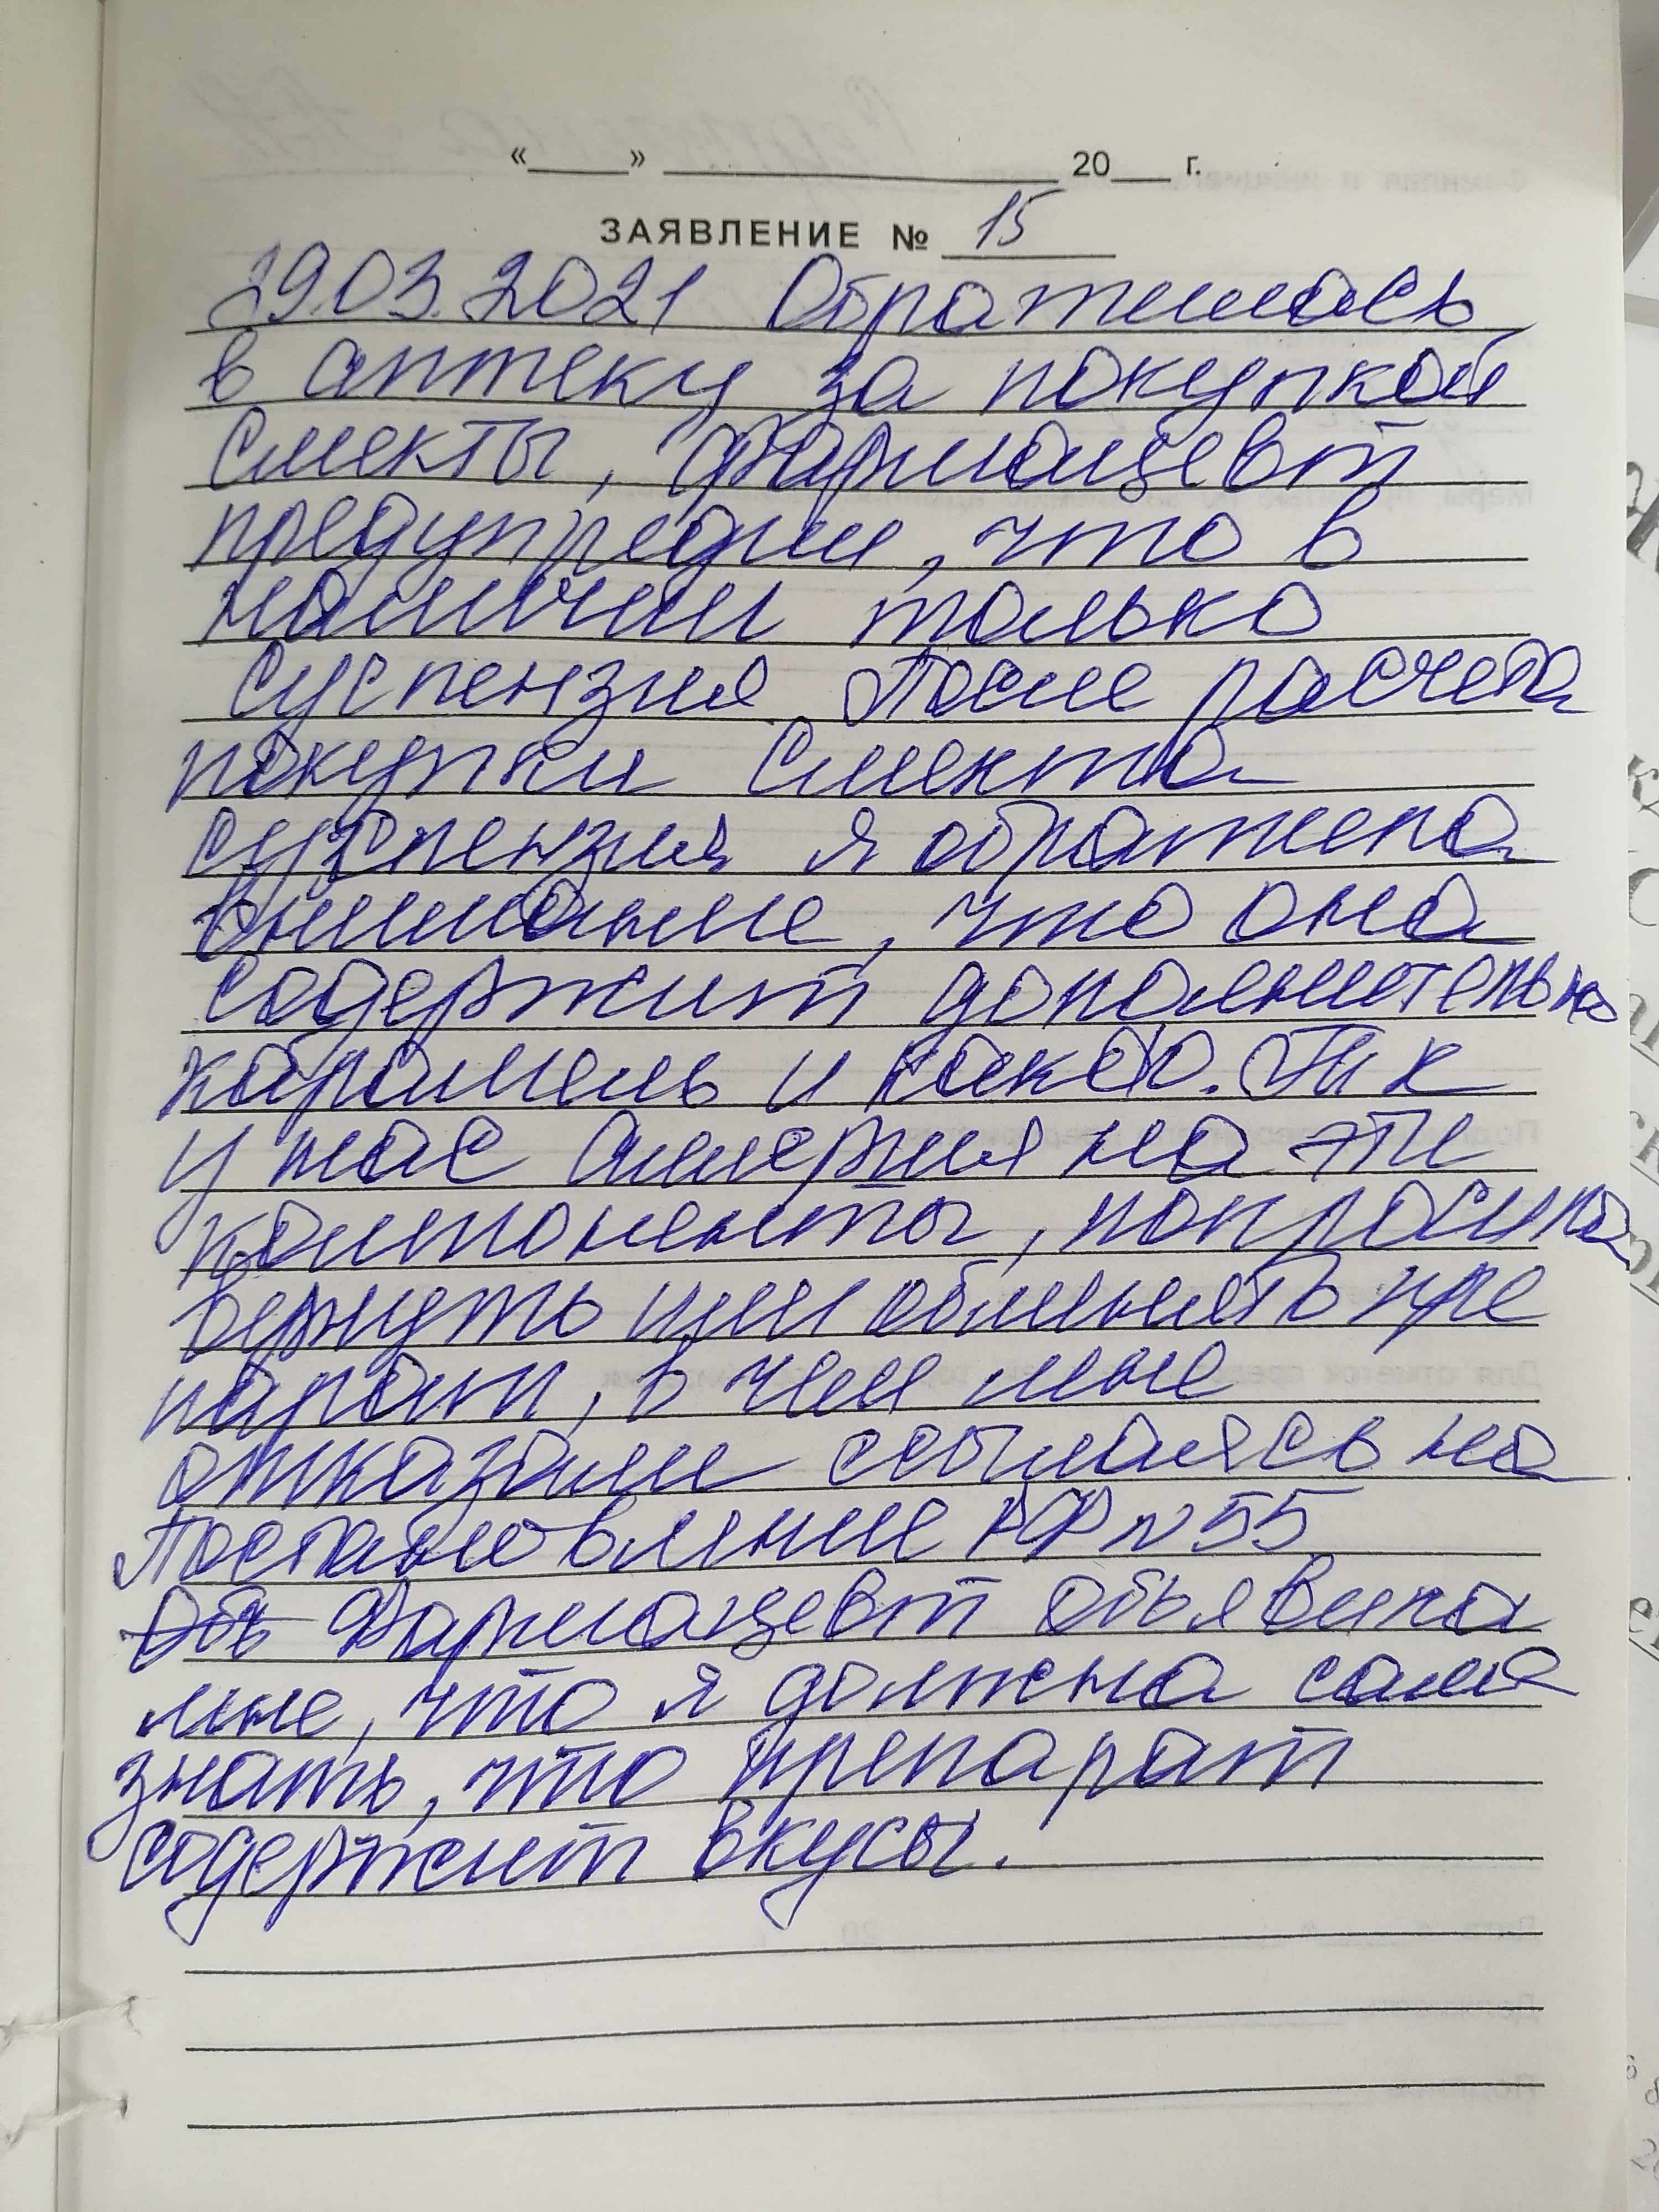 «____» ____________ 20___ г.
ЗАЯВЛЕНИЕ № 15
29.03.2021 Обратилась
в аптеку за покупкой
смекты, фармацевт
предупредил, что в
наличии только
суспензия После расчета
покупки Смекта
суспензия я обратила
внимание, что она
содержит дополнительно
карамель и какао. Т к
у нас аллергия на эти
компоненты, попросила
вернуть или обменять пре
парат, в чем мне
отказали ссылаясь на
Постановление РФ №55
Объ Фармацевт объявила
мне, что я должна сама
знать, что препарат
содержит вкусы.